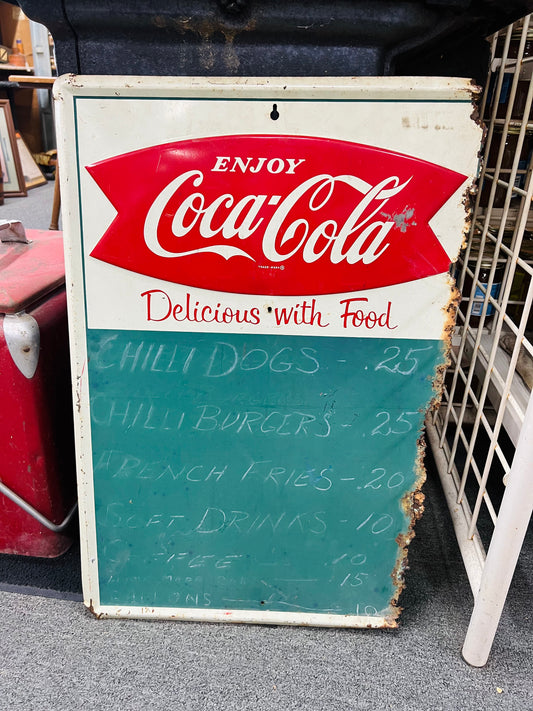 ENJOY
Coca-Cola
TRADE-MARK ®
Delicious with Food
CHILLI DOGS - .25
CHILLI BURGERS - .25
FRENCH FRIES - .20
SOFT DRINKS - 10
COFFEE 10
— 15
— 10